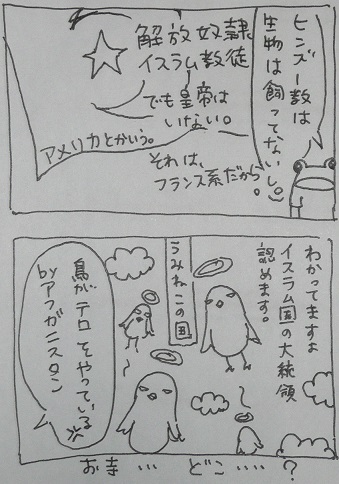 ヒンズー数は
生物は飼ってないし。
解放奴隷
イスラム教徒
でも皇帝は
いない。
アメリカとかいう。
それは、
フランス系だから。
わかってますよ
イスラム国の大統領
認めます。
うみねこの国
鳥がテロをやっている
byアフガニスタン
お寺…どこ‥‥?